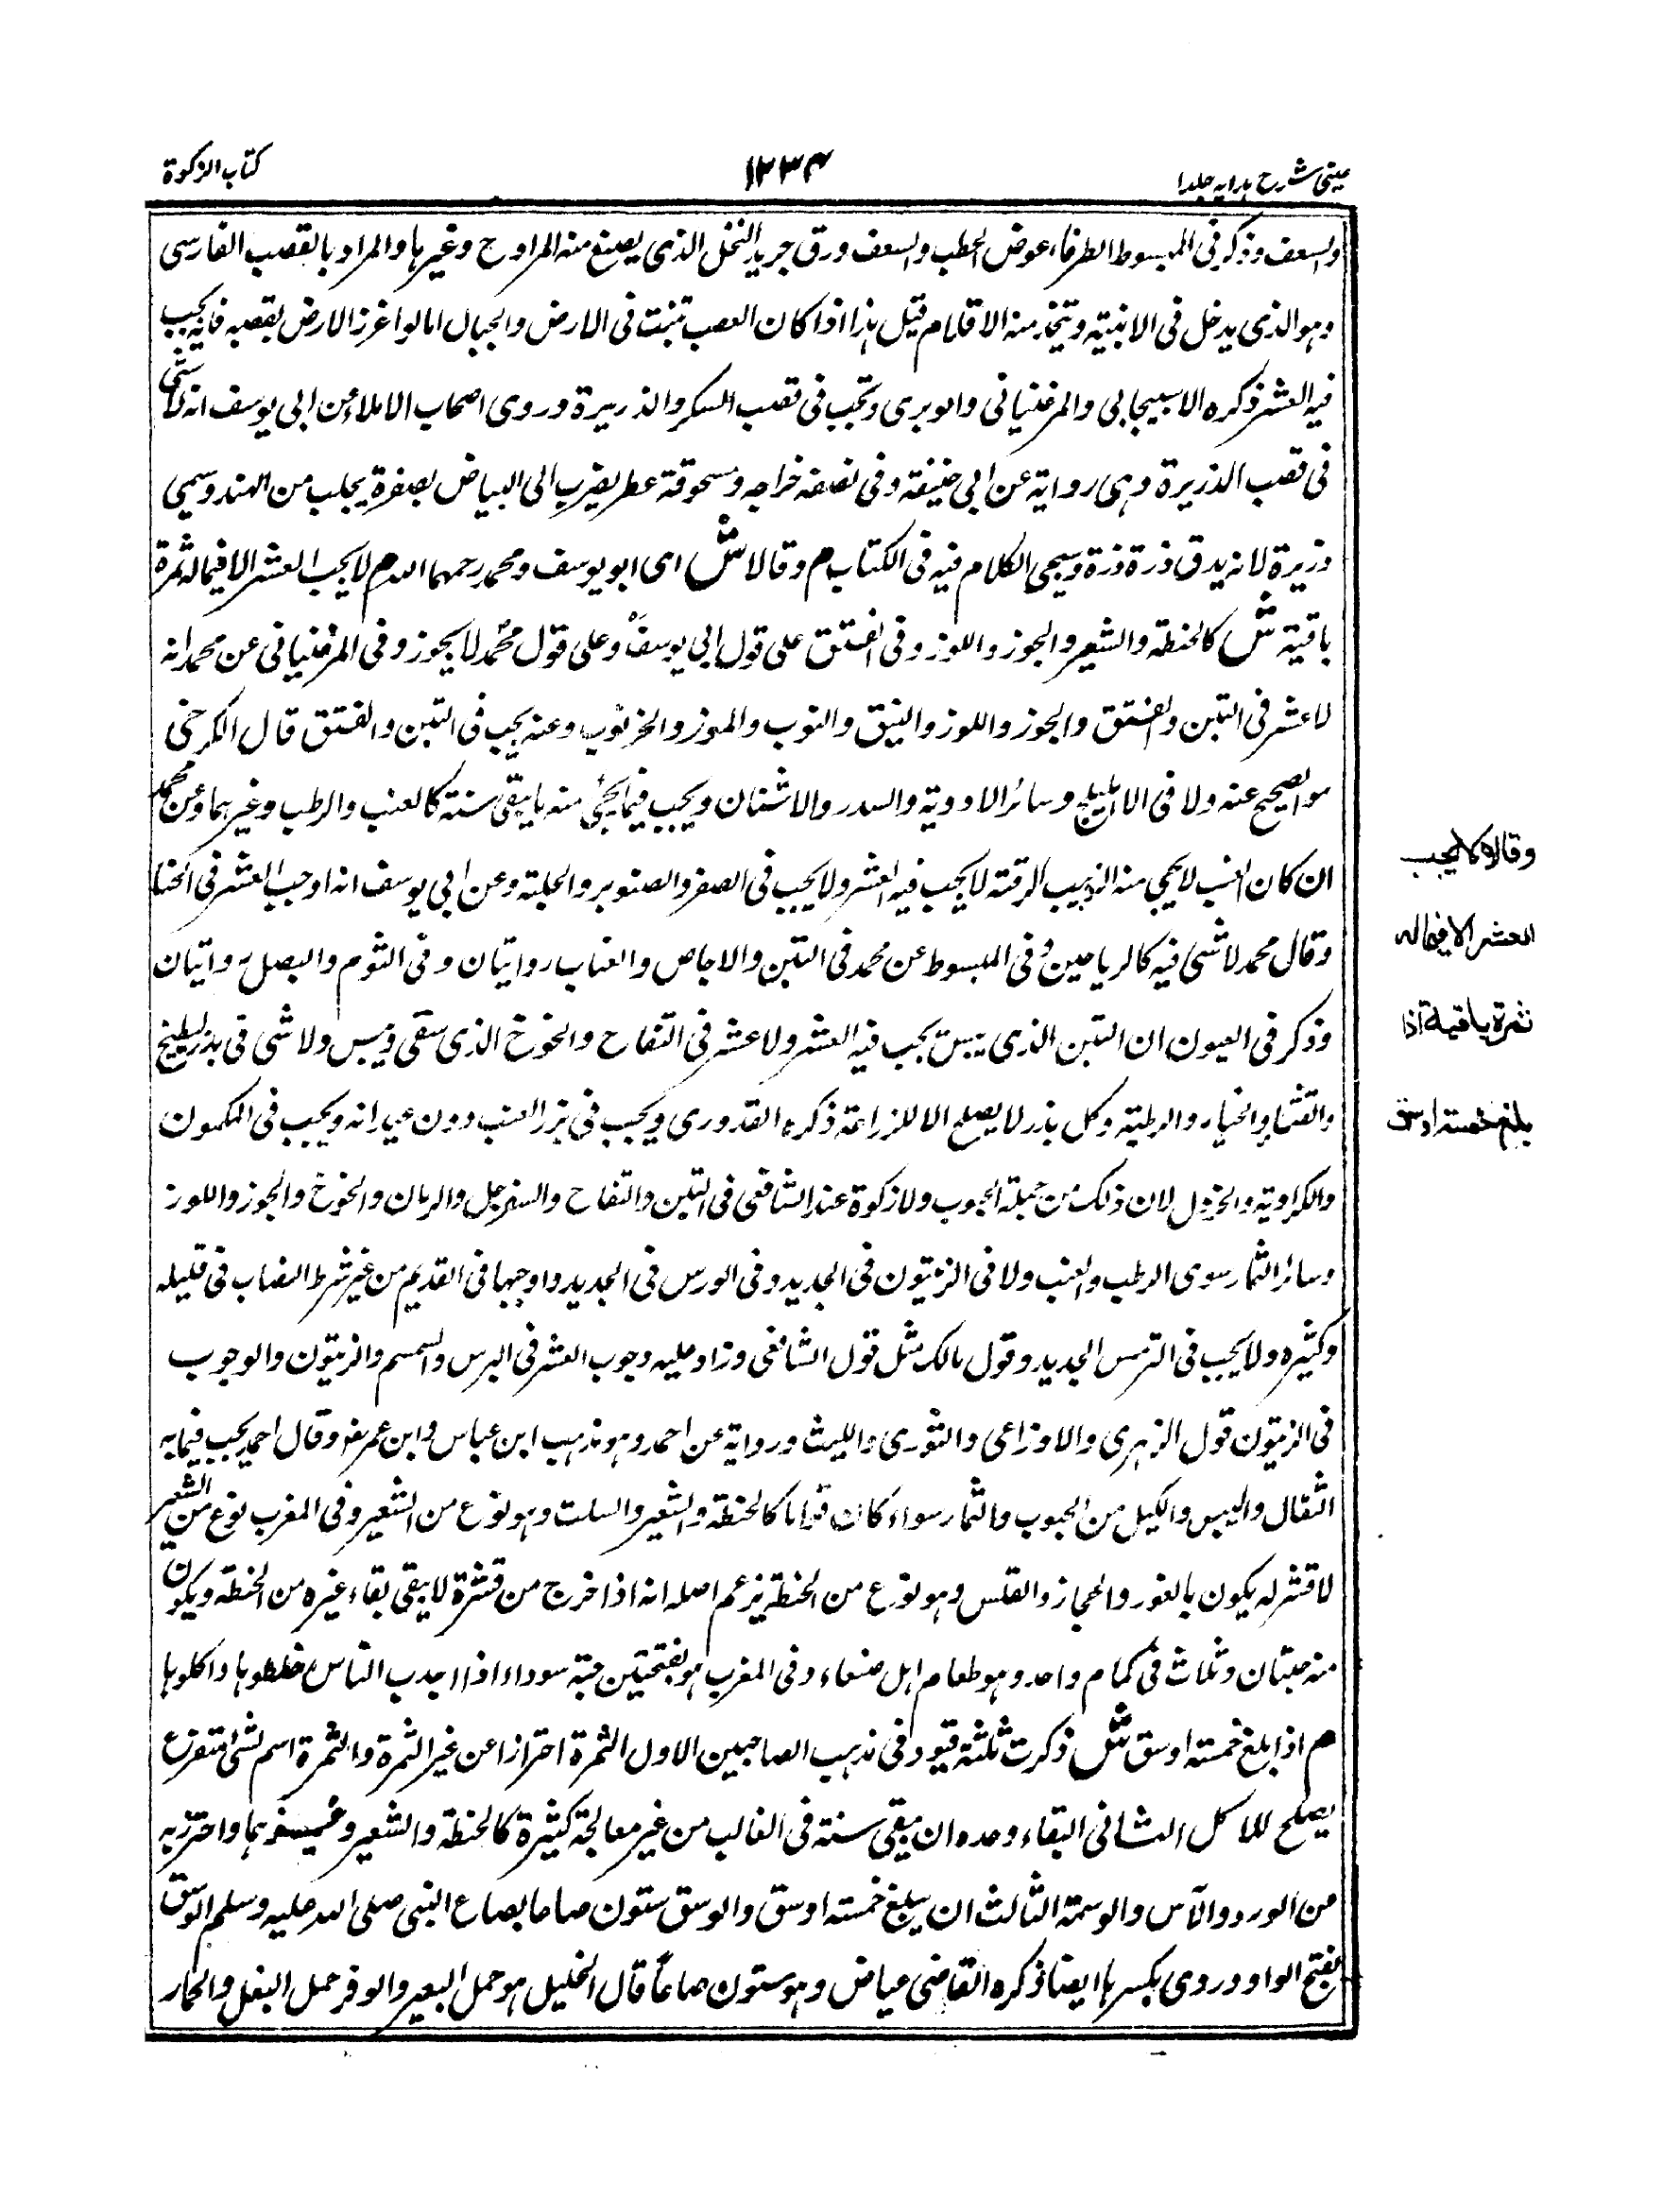 عینی شرح ہدایہ جلد ا
١٢٣٤
کتاب الزکوة
والسعف وذکر فی المبسوط الطرفاء عوض الحطب والسعف ورق جرید النخل الذی یصنع منه المراوح وغیرہا والمراد بالقصب الفارسی
وہو الذی یدخل فی الابنیة ویتخذ منه الاقلام قیل ہذا اذا کان القصب تنبت فی الارض والجبال اما لو اغرز الارض بقصبه فانه یجب
فیه العشر ذکره الاسبیجابی والمرغنیانی والوبری وتجب فی قصب السکر والذریرة وروی اصحاب الاملاء عن ابی یوسف انه لا شئ
فی قصب الذریرة وہی روایة عن ابی حنیفة وفی نصفه خراجه ومسحوقة عطر یضرب الی البیاض بصفرة یجلب من الہند وسمی
ذریرة لانه یدق ذرة ذرة وسیجی الکلام فیه فی الکتاب م وقالا ش ای ابو یوسف ومحمد رحمہما الله م لا یجب العشر الا فیما له ثمرة
باقیة ش کالحنطة والشعیر والجوز واللوز وفی الفستق علی قول ابی یوسف وعلی قول محمد لا یجوز وفی المرغنیانی عن محمد انه
لا عشر فی التین والفستق والجوز واللوز والنبق والتوب والموز والخرنوب وعنه یجب فی التین والفستق قال الکرخی
ہو الصحیح عنه ولا فی الاہلیلج وسائر الادویة والسدر والاشنان ویجب فیما یجئ منه ما یبقی سنة کالعنب والرطب وغیرہما وعن محمد
ان کان العنب لا یجی منه الزبیب الرقته لا یجب فیه العشر ولا یجب فی الصفر والصنوبر والحلبة وعن ابی یوسف انه اوجب العشر فی الحنا
وقال محمد لا شئ فیه کالریاحین وفی المبسوط عن محمد فی التین والاجاص والعناب روایتان وفی الثوم والبصل روایتان
وذکر فی العیون ان التین الذی یبس یجب فیه العشر ولا عشر فی التفاح والخوخ الذی سقی ویبس ولا شئ فی بذر البطیخ
والقثاء والخیار والرطبة وکل بذر لا یصلح الا للزراعة ذکره القدوری ویجب فی بزر العنب دون عیدانه ویجب فی الکمون
والکراویة والخردل لان ذلک من جملة الحبوب ولا زکوة عند الشافعی فی التین والتفاح والسفرجل والرمان والخوخ والجوز واللوز
وسائر الثمار سوی الرطب والعنب ولا فی الزیتون فی الجدید وفی الورس فی الجدید واوجبہا فی القدیم من غیر شرط النصاب فی قلیله
وکثیره ولا یجب فی الترمس الجدید وقول مالک مثل قول الشافعی وزاد علیه وجوب العشر فی البرس والسمسم والزیتون والوجوب
فی الزیتون قول الزہری والاوزاعی والثوری واللیث وروایة عن احمد وہو مذہب ابن عباس وابن عمر وقال احمد یجب فیما به
الثقال والیبس والکیل من الحبوب والثمار سواء کان قتاتا کالحنطة والشعیر والسلت وہو نوع من الشعیر وفی المغرب نوع من الشعیر
لا قشر له یکون بالغور والحجاز والعلس وہو نوع من الحنطة یزعم اصله انه اذا خرج من قشرة لا یبقی بقاء غیره من الحنطة ویکون
منه حبتان وثلاث فی کمام واحد وہو طعام اہل صنعاء وفی المغرب ہو بفتحتین حبة سوداء اذا اجدب الناس خلطوہا واکلوہا
م اذا بلغ خمسة اوسق ش ذکرت ثلثة قیود فی مذہب الصاحبین الاول الثمرة احترازا عن غیر الثمرة والثمرة اسم لشئ متفرع
یصلح للاکل الثانی البقاء وحده ان یبقی سنة فی الغالب من غیر معالجة کثیرة کالحنطة والشعیر وغیرہما واحترز به
من الورد والآس والوسمة الثالث ان یبلغ خمسة اوسق والوسق ستون صاعا بصاع النبی صلی الله علیه وسلم الوسق
بفتح الواو وروی بکسرہا ایضا ذکره القاضی عیاض وہو ستون صاعاً قال الخلیل ہو حمل البعیر والوقر حمل البغل والحمار
وقالا لا یجب
العشر الا فیما له
ثمرة باقیة اذا
بلغ خمسة اوسق